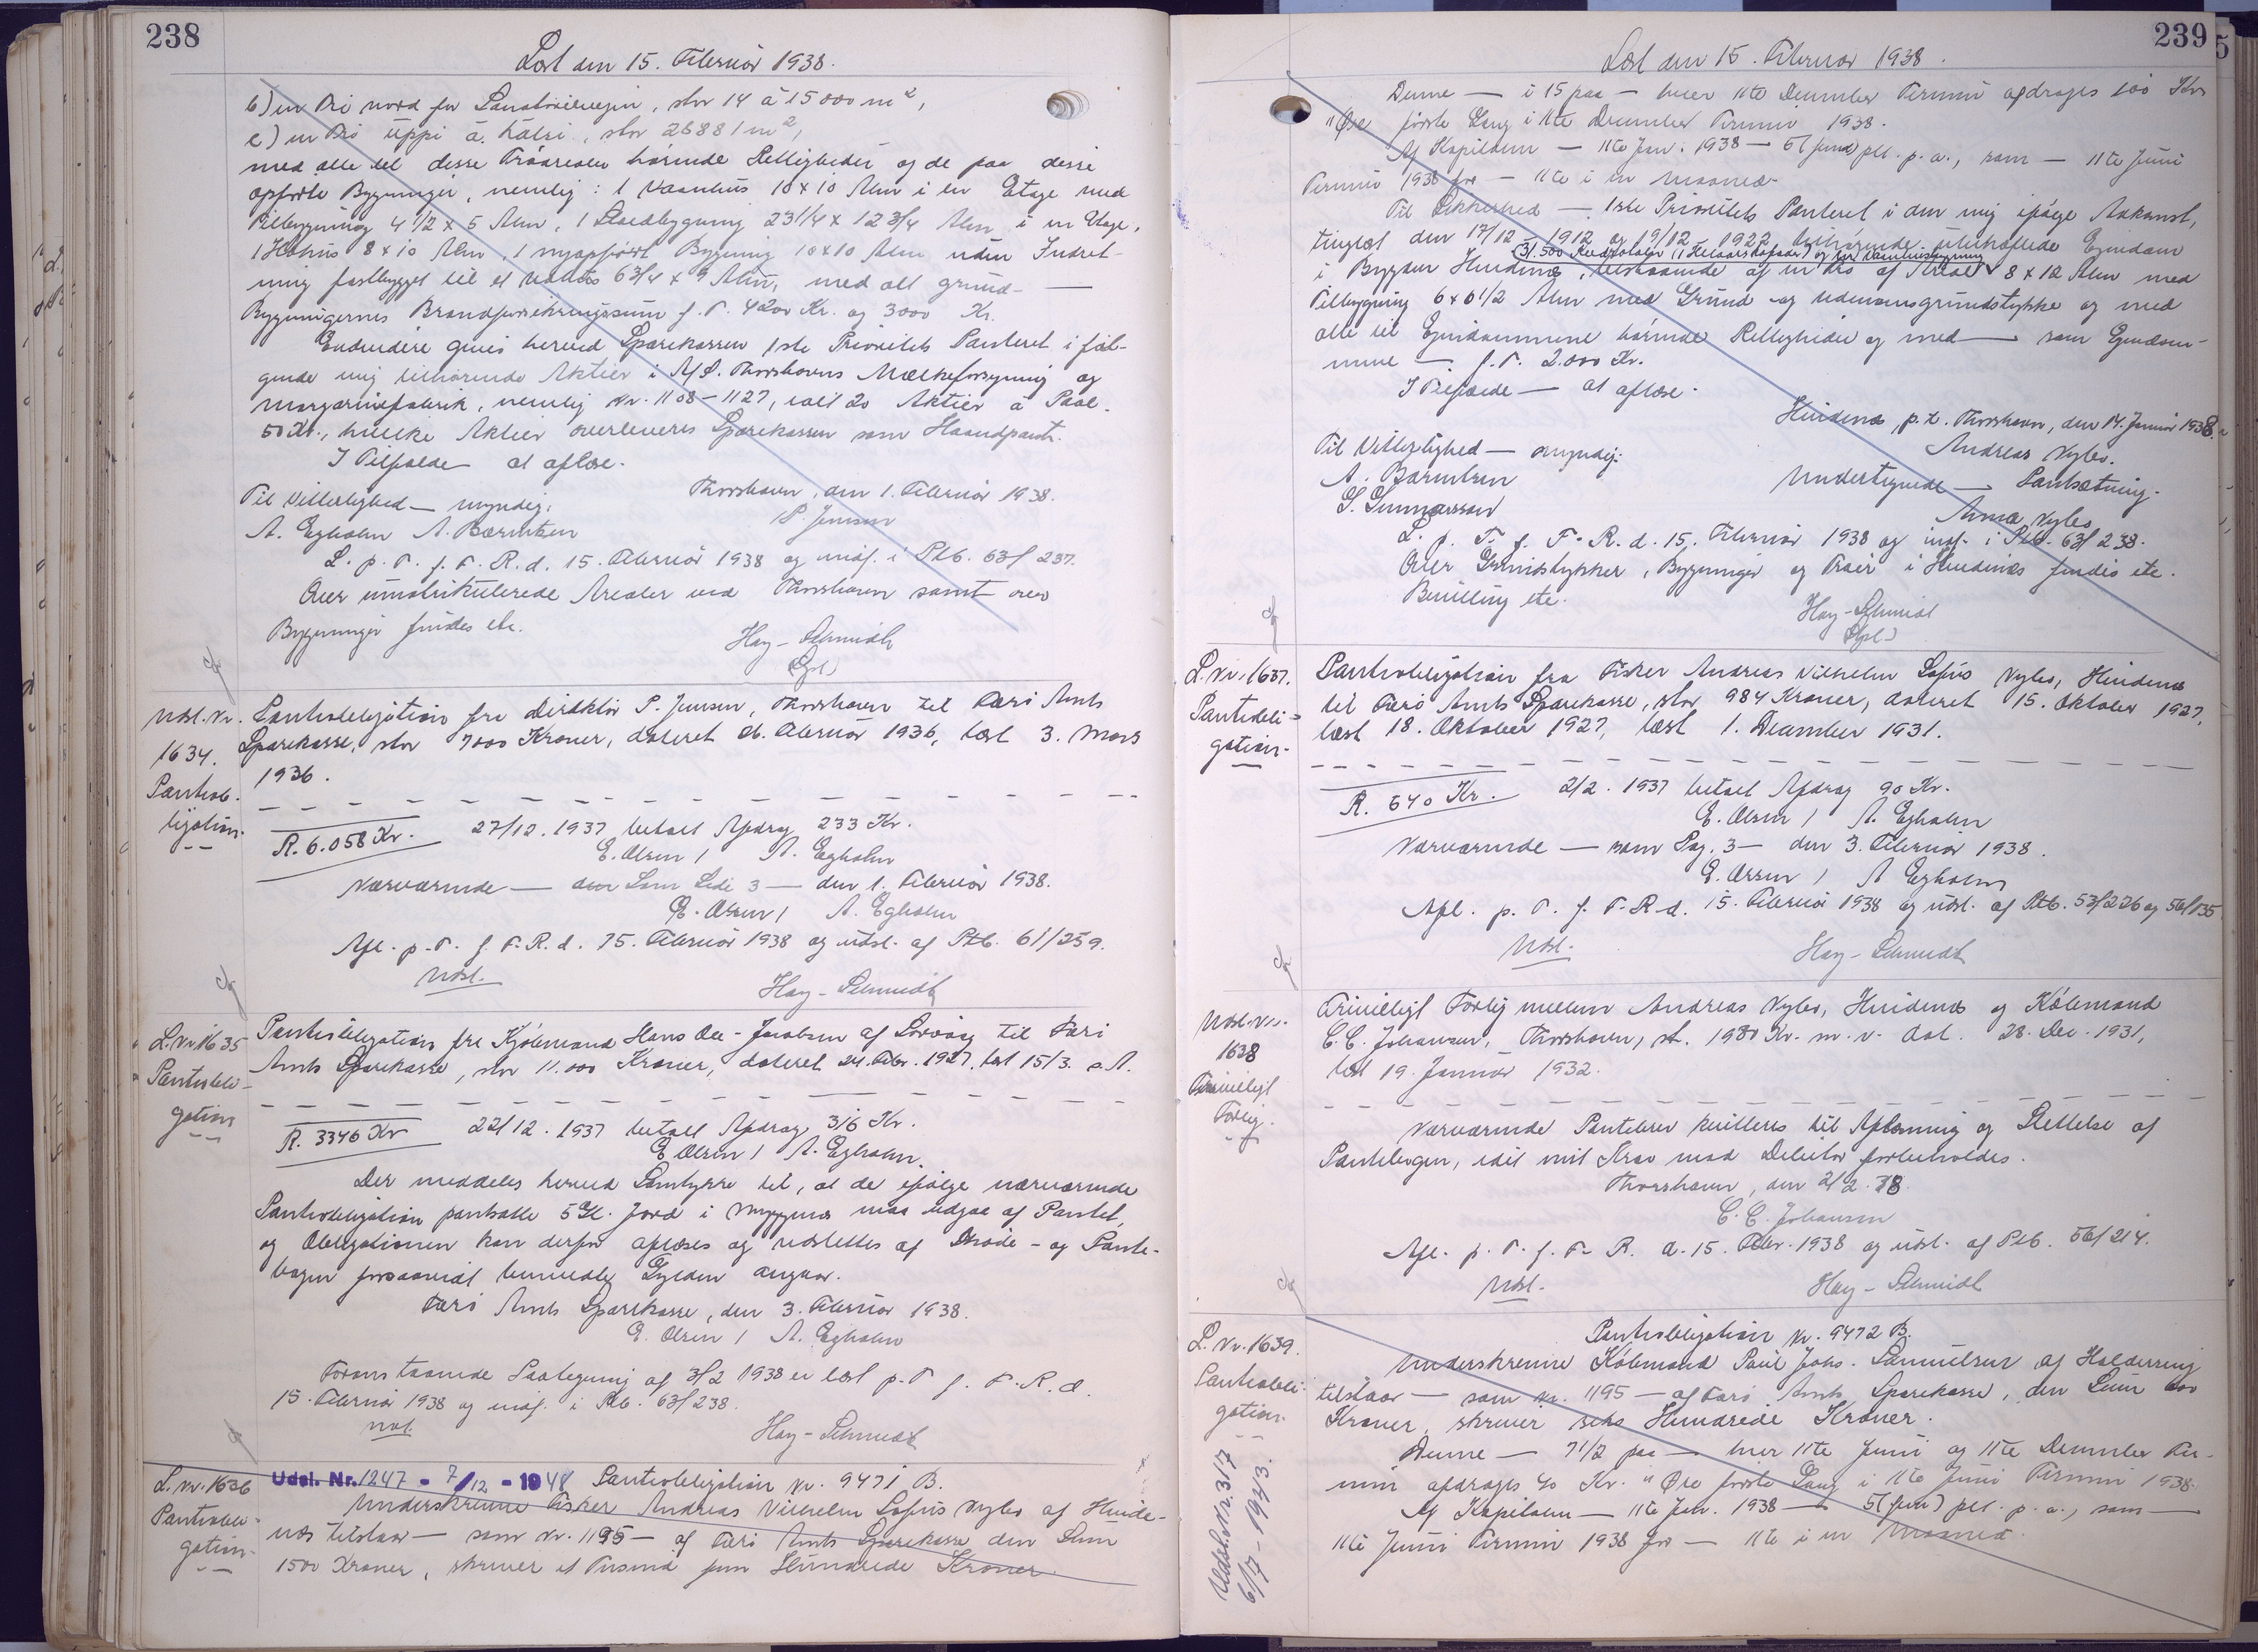 238
Læst den 15. Februar 1938.
b) en Trø nord for Sanatorievejen, stor 14 à 15000 m²,
c) en Trø uppi á Hálsi, stor 26881 m²,
med alle til disse Trøarealer hørende Rettigheder og de paa disse
opførte Bygninger, nemlig: 1 Vaanhus 10 x 10 Alen i en Etage med
Tilbygning 4 1/2 x 5 Alen, 1 Staldbygning 23 1/4 x 12 3/4 Alen i en Etage,
1 Høhus 8 x 10 Alen, 1 nyopført Bygning 10 x 10 Alen uden Indret-
ning fastbygget til et 6 3/4 x 9 Alen, med alt grund- —
Bygningernes Brandforsikringssum f. T. 4200 Kr. og 3000 Kr.
Endvidere gives herved Sparekassen 1ste Prioritets Panteret i føl-
gende mig tilhørende Aktier i A/S. Thorshavns Mælkeforsyning og
Margarinefabrik, nemlig Nr. 1108-1127, ialt 20 Aktier à Paal.
50 Kr., hvilke Aktier overleveres Sparekassen som Haandpant.
I Tilfælde — at aflæse.
Thorshavn, den 1. Februar 1938.
P. Jensen
Til Vitterlighed — myndig:
A. Egholm A. Bærentsen
L. p. T. f. F. R. d. 15. Februar 1938 og indf. i Ptb. 63/237.
Over umatrikulerede Arealer ved Thorshavn samt over
Bygninger findes etc.
Hay-Schmidt
(Gpl)
Udsl. Nr.
1634.
Pantob-
ligation.
Pantobligation fra Direktør P. Jensen, Thorshavn til Færø Amts
Sparekasse, stor 7000 Kroner, dateret 26. Februar 1936, læst 3. Mars
1936.
R. 6.058 Kr. 27/12. 1937 betalt Afdrag 233 Kr.
E. Olsen / A. Egholm
Nærværende — som Side 3 — den 1. Februar 1938.
E. Olsen / A. Egholm
Afl. p. T. f. F. R. d. 15. Februar 1938 og udsl. af Ptb. 61/259.
Udsl. Hay-Schmidt
L. Nr. 1635
Pantobli-
gation
Pantobligation fra Kjøbmand Hans Ole-Jacobsen af Sørvág til Færø
Amts Sparekasse, stor 11.000 Kroner, dateret 24. Febr. 1927, læst 15/3. s. A.
R. 3346 Kr 22/12. 1937 betalt Afdrag 316 Kr.
E. Olsen / A. Egholm.
Der meddeles herved Samtykke til, at de ifølge nærværende
Pantobligation pantsatte 5 Gl. Jord i Myggenæs maa udgaa af Pantet,
og Obligationen kan derfor aflæses og udslettes af Skøde- og Pante-
bogen forsaavidt bemeldte Gylden angaar.
Færø Amts Sparekasse, den 3. Februar 1938.
E. Olsen / A. Egholm
Foranstaaende Paategning af 3/2 1938 er læst p. T. f. F. R. d.
15. Februar 1938 og indf. i Ptb. 63/238.
Hay-Schmidt
L. Nr. 1636
Pantobli-
gation.
Udsl. Nr. 1247 - 7/12 - 1948 Pantobligation Nr. 9471 B.
Underskrevne Fisker Andreas Vilhelm Sofus Nybo af Hvide-
næs tilstaar — som Nr. 1195 — af Færø Amts Sparekasse den Sum
1500 Kroner, skriver et Tusind fem Hundrede Kroner.
239
Læst den 15. Februar 1938.
Denne — i 15 paa — hver 11te December Termin afdrages 100 Kr
" Øre første Gang i 11te December Termin 1938.
Af Kapitalen — 11te Jan. 1938 — 5 (fem) pct. p. a., som — 11te Juni
Termin 1938 for — 11te i en Maaned.
Til Sikkerhed — 1ste Prioritets Panteret i den mig ifølge Adkomst,
tinglæst den 17/12 1912 og 19/12 1922 tilhørende ubehæftede Ejendom
i Bygden Hvidenæs, bestaaende af en Trø af Areal 8 x 12 Alen med
Tilbygning 6 x 6 1/2 Alen med Grund og Udenomsgrundstykke og med
alle til Ejendommene hørende Rettigheder og med — som Ejendom-
mene — f. T. 2.000 Kr.
I Tilfælde — at aflæse.
Hvidenæs, p. t. Thorshavn, den 14. Januar 1938.
Andreas Nybo.
Til Vitterlighed — myndig:
A. Bærentsen
S. Gunnarsson
Undertegnede — Pantsætning.
Anna Nybo
L. p. T. f. F. R. d. 15. Februar 1938 og indf. i Ptb. 63/238.
Over Grundstykker, Bygninger og Trøer i Hvidenæs findes etc.
Bevilling etc.
Hay-Schmidt
(Gpl)
L. Nr. 1637.
Pantobli-
gation.
Pantobligation fra Fisker Andreas Vilhelm Sofus Nybo, Hvidenæs
til Færø Amts Sparekasse, stor 984 Kroner, dateret 15. Oktober 1927,
læst 18. Oktober 1927, læst 1. December 1931.
R. 640 Kr. 2/2. 1937 betalt Afdrag 90 Kr.
E. Olsen / A. Egholm
Nærværende — som Pag. 3 — den 3. Februar 1938.
E. Olsen / A. Egholm
Afl. p. T. f. F. R. d. 15. Februar 1938 og udsl. af Ptb. 53/226 og 56/135
Udsl. Hay-Schmidt
Udsl. Nr.
1638
Frivilligt
Forlig.
Frivilligt Forlig mellem Andreas Nybo, Hvidenæs og Købmand
C. C. Johansen, Thorshavn, st. 1980 Kr. m. v. dat. 28. Dec. 1931,
læst 19. Januar 1932.
Nærværende Pantebrev kvitteres til Aflæsning og Slettelse af
Pantebogen, idet mit Krav mod Debitor forbeholdes.
Thorshavn, den 2/2. 38.
C. C. Johansen
Afl. p. T. f. F. R. d. 15. Febr. 1938 og udsl. af Ptb. 56/214.
Udsl. Hay-Schmidt
L. Nr. 1639.
Pantobli-
gation.
Udsl. Nr. 317
6/7 - 1943.
Pantobligation Nr. 9472 B.
Underskrevne Købmand Poul Johs. Samuelsen af Haldersvig
tilstaar — som Nr. 1195 — af Færø Amts Sparekasse, den Sum 600
Kroner, skriver seks Hundrede Kroner.
Denne — 7 1/2 paa — hver 11te Juni og 11te December Ter-
min afdrages 40 Kr. " Øre første Gang i 11te Juni Termin 1938.
Af Kapitalen — 11te Jan. 1938 — 5 (fem) pct. p. a., som —
11te Juni Termin 1938 for — 11te i en Maaned.